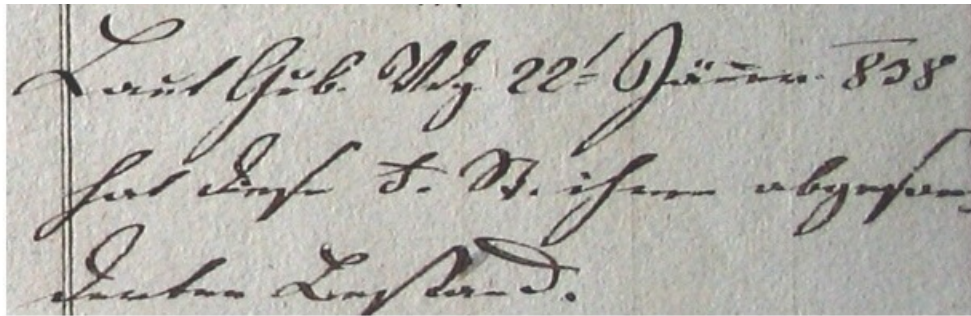 Laut Gub. Vdg. 22t Jänner 838
hat diese S. St. ihren abgeson-
derten Bestand.